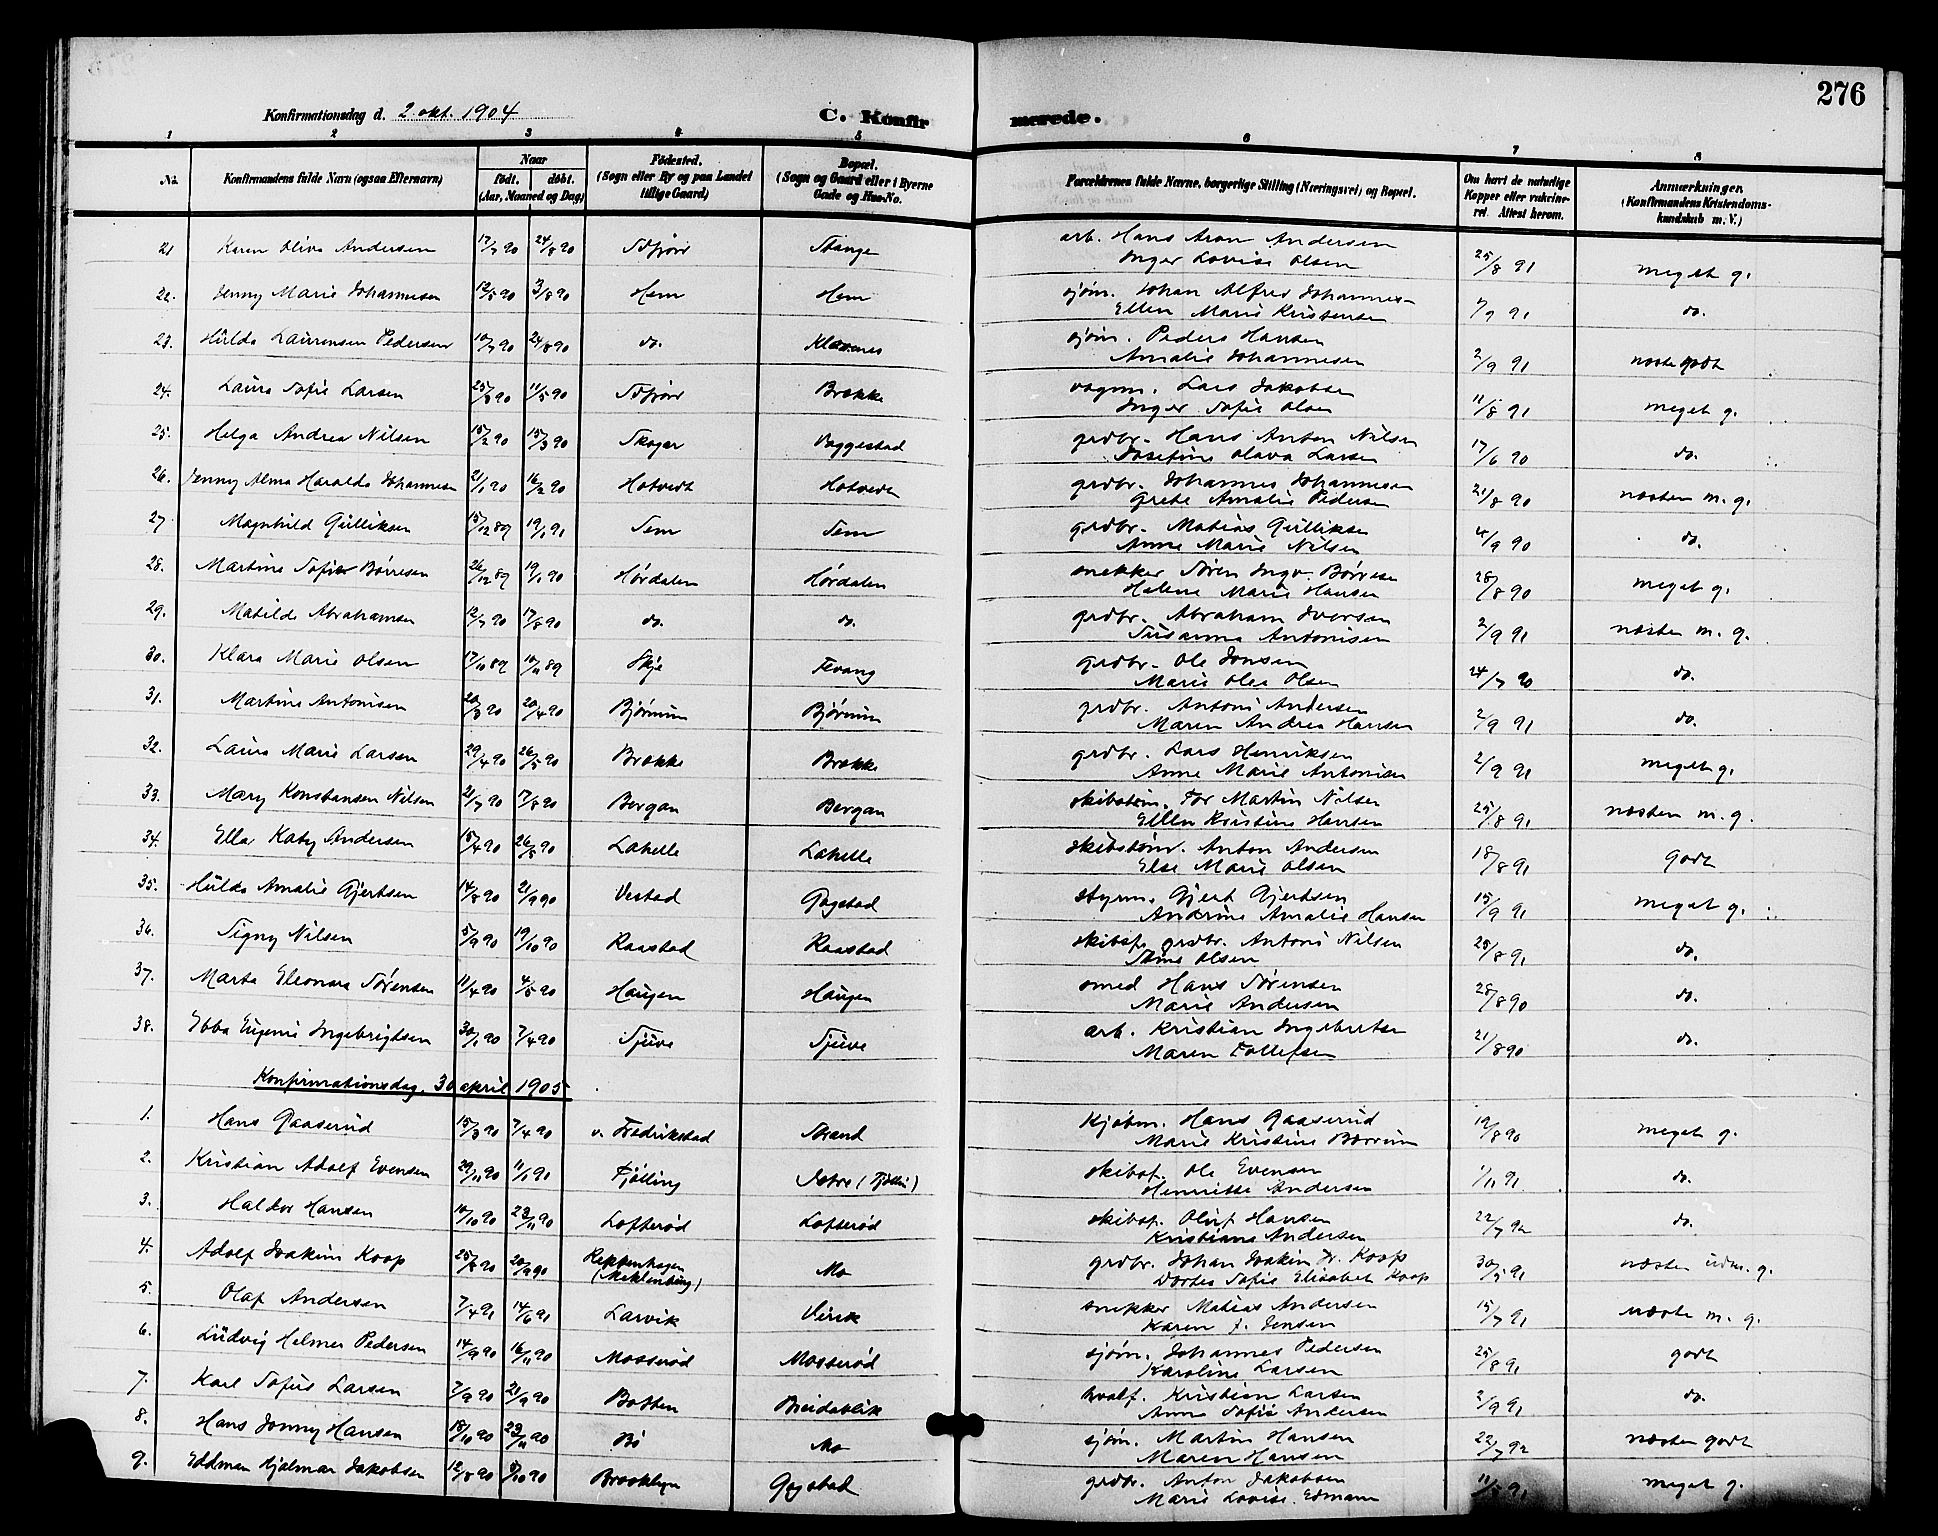 276
Konfirmationsdag d. 2 okt. 1904 C. Konfirmerede.
1 2 3 4 5 6 7 8
No. Konfirmandens fulde Navn (ogsaa Efternavn) Naar født. døbt. (Aar, Maaned og Dag) Fødested. (Sogn eller By og paa Landet tillige Gaard) Bopæl. (Sogn og Gaard eller i Byerne Gade og Hus-No. Forældrenes fulde Navne, borgerlige Stilling (Næringsvei) og Bopæl. Om havt de naturlige Kopper eller vakcineret. Attest herom. Anmærkninger. (Konfirmandens Kristendomskundskab m. V.)
21 Karen Olive Andersen 17/7 90 24/8 90 Stange arb. Hans Aron Andersen
Inger Lovise Olsen 25/8 91 meget g.
22. Jenny Marie Johannesen 12/5 90 3/8 90 Hem Hem sjøm. Johan Alfred Johannes-
Ellen Marie Kristensen 7/9 91 do.
23. Hulda Laurensen Pedersen 10/7 90 24/8 90 do. Klavenes sjøm. Peders Hansen
Amalie Johannesen 2/9 91 næste godt
24. Laura Sofie Larsen 25/3 90 11/5 90 Brække vognm. Lars Jakobsen
Inger Sofie Olsen 11/8 91 meget g.
25. Helga Andrea Nilsen 15/2 90 15/3 90 Skoger Boggestad grdbr. Hans Anton Nilsen
Josefine Olava Larsen 17/6 90 do.
26. Jenny Alma Haralda Johannesen 21/1 90 16/2 90 Hotvedt Hotvedt grdbr. Johannes Johannesen
Grete Amalie Pedersen 21/8 90 næsten m. g.
27. Magnhild Gulliksen 15/12 89 19/1 91 Sem Sem grdbr. Matias Gulliksen
Anne Marie Nilsen 4/9 90 do.
28. Martine Sofie Børresen 26/12 89 19/1 90 Hørdalen Hørdalen snekker Søren Ingv. Børresen
Helene Marie Hansen 28/8 90 meget g.
29. Matilde Abrahamsen 12/7 90 17/8 90 do. do. grdbr. Abraham Iversen
Susanna Antonisen 2/9 91 næsten m. g.
30. Klara Marie Olsen 17/10 89 10/11 89 Skje Fevang grdbr. Ole Jonsen
Marie Olea Olsen 24/7 90 do.
31. Martine Antonisen 20/3 90 20/4 90 Bjørnum Bjørnum grdbr. Antoni Andersen
Maren Andrea Hansen 2/9 91 do.
32. Laura Marie Larsen 29/4 90 26/5 90 Brække Brække grdbr. Lars Henriksen
Anne Marie Antonisen 2/9 91 meget g.
33. Mary Konstansen Nilsen 21/7 90 17/8 90 Bergan Bergan skibstøm. Tor Martin Nilsen
Ellen Kristine Hansen 25/8 91 næsten m. g.
34. Ella Katy Andersen 15/4 90 26/5 90 Lahelle Lahelle skibstøm. Anton Andersen
Else Marie Olsen 18/8 91 godt
35. Hulda Amalie Gjertsen 14/8 90 21/9 90 Vestad Gogstad styrm. Gjert Gjertsen
Andrine Amalie Hansen 15/9 91 meget g.
36. Signy Nilsen 5/9 90 19/10 90 Raastad Raastad skibsf. grdbr. Antoni Nilsen
Olsen 25/8 91 do.
37. Marta Eleonora Sørensen 11/4 90 4/5 90 Haugen Haugen smed Hans Sørensen
Marie Andersen 28/8 90 do.
38. Ebba Eugenie Ingebrigtsen 30/1 90 7/4 90 Tjuve Tjuve arb. Kristian Ingebretsen
Maren Tollefsen 21/8 90 do.
Konfirmationsdag, 30 april 1905
1. Hans Gaaserud 15/3 90 7/4 90 v. Fredrikstad Strand Kjøbm. Hans Gaaserud
Marie Kristine Børrum 19/8 90 meget g.
2. Kristian Adolf Evensen 29/11 90 11/1 91 Tjølling Istre (Tjøllin) skibsf. Ole Evensen
Henriette Andersen 1/11 91 do.
3. Haldor Hansen 10/10 90 23/11 90 Lofterød Lofterød skibsf. Oluf Hansen
Kristiane Andersen 22/7 92 do.
4. Adolf Joakim Koop 25/8 90 20/9 90 Reppenhagen
(Meklenburg) Mo grdbr. Johan Joakim Fr. Koop
Dortea Sofie Elisabet Koop 30/5 91 næsten udm. g.
5. Olaf Andersen 7/4 91 14/6 91 Larvik Virik snekker Matias Andersen
Karen J. Jensen 15/7 91 næste m. g.
6. Ludvig Helmer Pedersen 14/9 90 16/11 90 Mosserød Mosserød sjøm. Johannes Pedersen
Karoline Larsen 25/8 91 godt
7. Karl Sofus Larsen 7/9 90 21/9 90 Botten Breidablik hvalf. Kristian Larsen
Anna Sofie Andersen 2/9 91 do.
8. Hans Jonny Hansen 18/10 90 23/11 90 Bø Mo sjøm. Martin Hansen
Maren Hansen 22/7 92 næsten godt
9. Eddman Hjalmar Jakobsen 12/8 90 5/10 90 Brooklyn Gogstad grdbr. Anton Jakobsen
Marie Lovise Edmann 11/8 91 meget g.